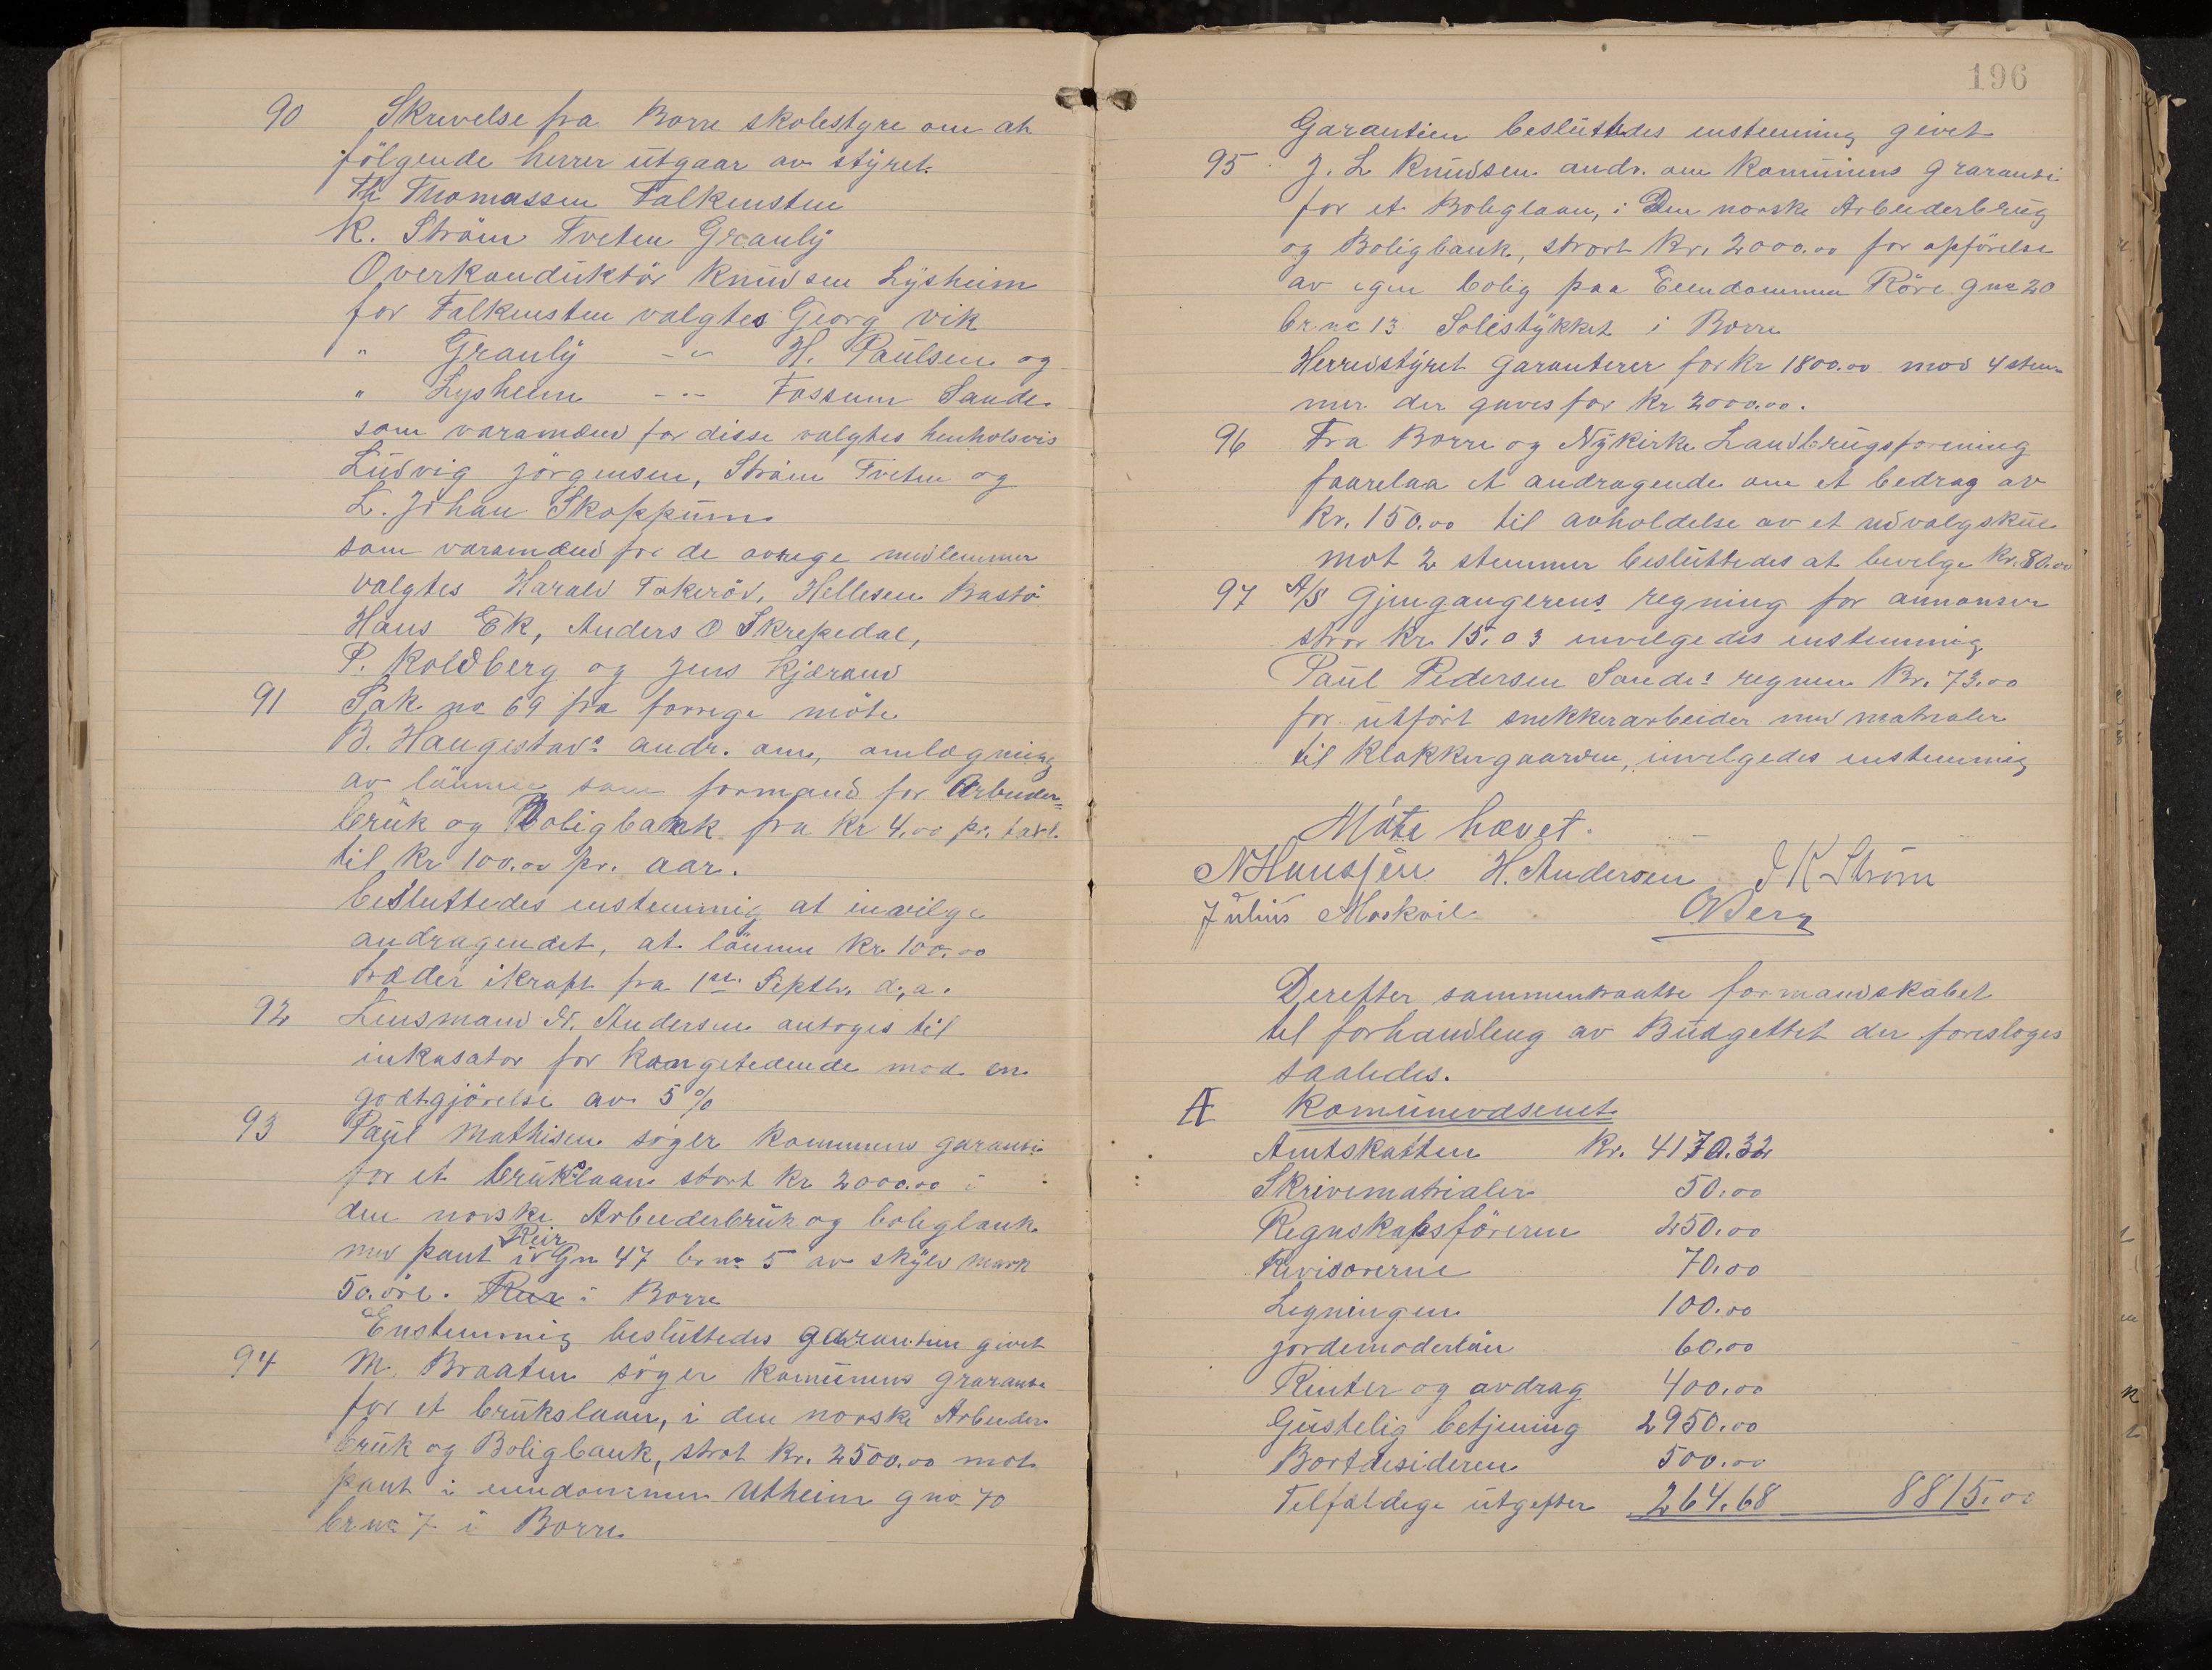 90 Skrivelse fra Borre skolestyre om at
følgende herrer utgaar av styret.
Th Thomassen Falkensten
K. Strøm Tveten Granly
Overkonduktør Knudsen Lysheim
for Falkensten valgtes Georg vik
" Granly -"- H. Paulsen og
" Lysheim -"- Fossum Sande
som varamænd for disse valgtes henholsvis
Ludvig jørgensen, Strøm Tveten og
L. Johan Skoppum
som varamænd for de øvrige medlemmer
valgtes Harald Fokerød, Hellesen Bastø
Hans Ek, Anders O Skrepedal,
P. Koldberg og Jens Kjærand
91 Sak no 69 fra forrige møte
B. Haugestads andr. om, omlægning
av lønnen som formand for Arbeider=
bruk og Boligbank fra kr 4,00 pr. takst.
til kr 100.00 pr. aar.
besluttedes enstemmig at invilge
andragendet, at lønnen kr. 100.00
træder ikraft fra 1ste Septbr. d.,a.
92 Lensmand N. Andersen antoges til
inkasator for kongetiende mod en
godtgjørelse av 5 %
93 Paul Mathisen søger kommunens garanti
for et brukslaan stort kr 2000.00 i
den norske Arbeiderbruk og boligbank
med pant i Reir Gn 47 br no 5 av skyld mark
50.øre. Reir i Borre
Enstemmig besluttedes garantien givet
94 M. Braaten søger komunens graranti
for et brukslaan, i den norske Arbeider
bruk og Boligbank, strot kr. 2500.00 mot
pant i eiendommen Utheim g no 70
br no 7 i Borre
196
Garantien besluttedes enstemmig givet
95 J. L Knudsen andr. om komunens graranti
for et Boliglaan, i Den norske Arbeiderbrug
og Boligbank, strort kr. 2000.00 for opførelse
av egen bolig paa Eiendommen Røre gno 20
br. no 13 Solistykket i Borre
Herredstyret garanterer for kr 1800.00 mod 4 stem
mer der gaves for kr 2000.00.
96 Fra Borre og Nykirke Landbrugsforening
foorelaa et andragende om et bedrag av
kr. 150.00 til avholdelse av et
mot 2 stemmer besluttedes at bevilge kr. 80.00
97 A/S Gjengangerens regning for annonser
stror kr. 15.03 invilgedes enstemmig
Paul Pedersen Sandes regnen kr. 73.00
for utført snekkerarbeider med matrialer
til Klokkergaarden, invilgedes enstemmig
Møte hævet.
N Hanssen H. Andersen J K Strøm
Julius Moskvil O Berg
Derefter sammentraatte formandskabet
til forhandling av Budgettet der foresloges
saaledes.
A Komunevæsenet
Amtskatten kr. 4170.32
Skrivematrialer 50.00
Regnskapsføreren 250.00
Revisorerne 70.00
Legningen 100.00
jordemoderløn 60.00
Renter og avdrag 400.00
Geistelig betjening 2950.00
Bortdesideren 500.00
Telfældige utgefter 264.68 8815.00